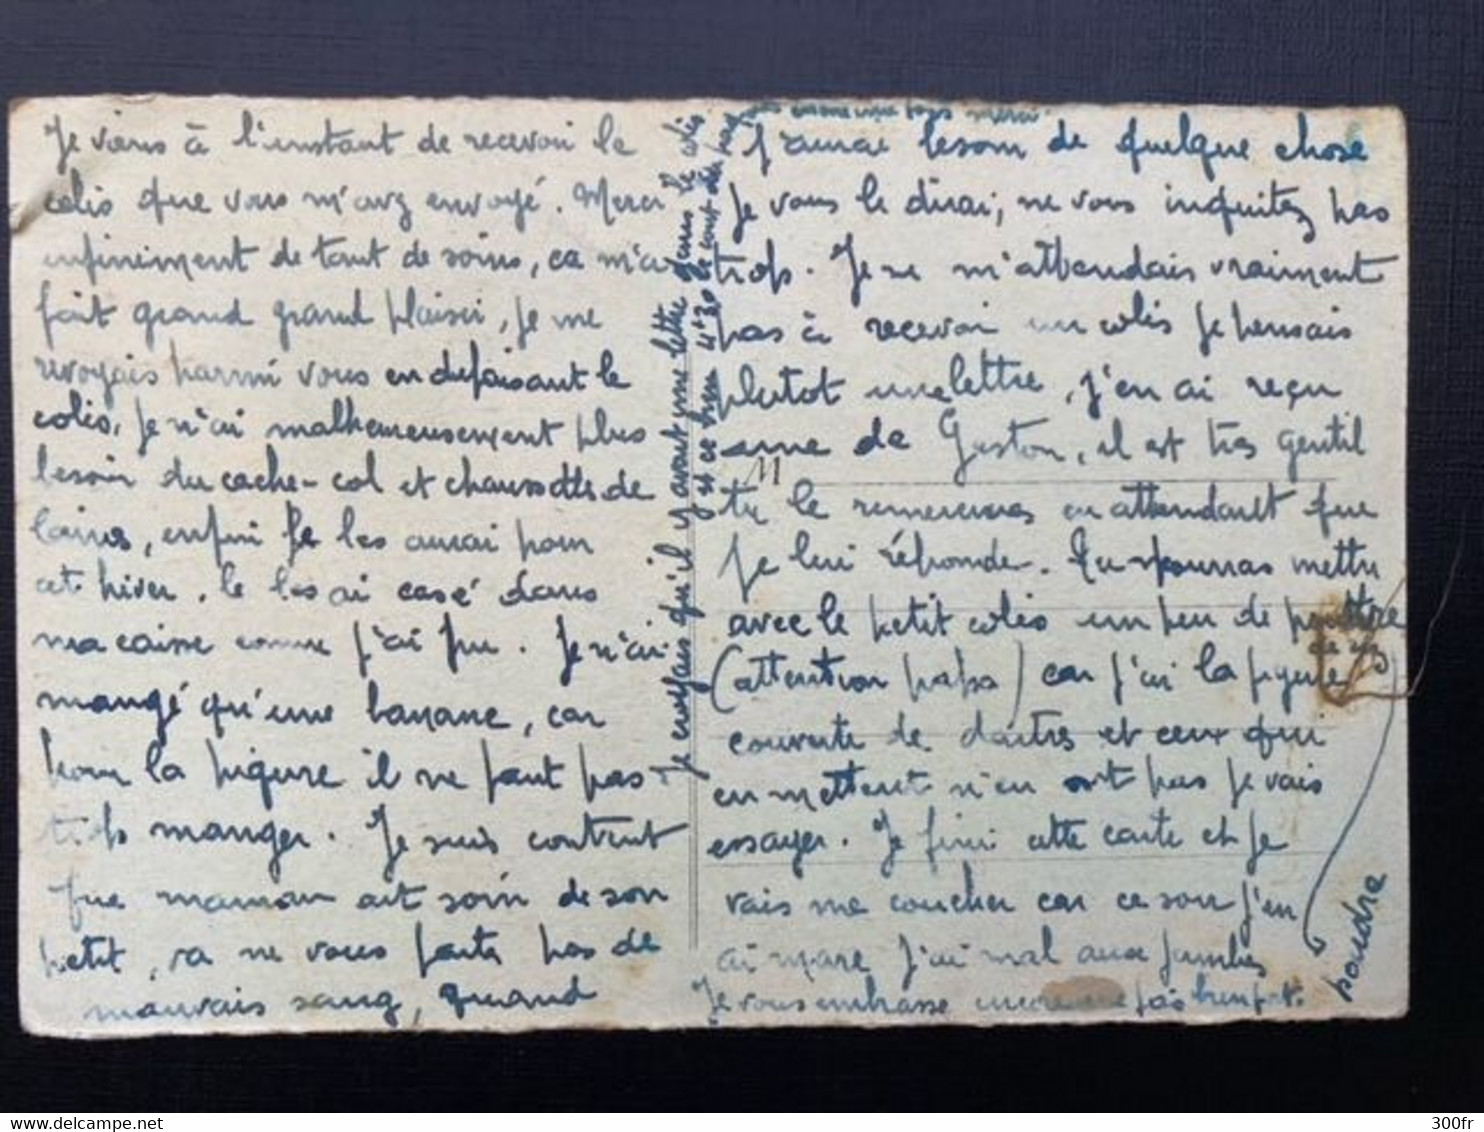 Je viens à l'instant de recevoir le
colis que vous m'avez envoyé. Merci
infiniment de tant de soins, ça m'a
fait grand grand plaisir, je me
revoyais parmi vous en defaisant le
colis, je n'ai malheureusement plus
besoin du cache-col et chaussettes de
laines, enfin je les aurai pour
cet hiver. Je les ai casé dans
ma caisse comme j'ai pu. Je n'ai
mangé qu'une banane, car
pour la piqure il ne faut pas
trop manger. Je suis content
que maman ait soin de son
petit, va ne vous faite pas de
mauvais sang, quand
Je croyais qu'il y avait une lettre dans le colis
encore une fois merci
J'aurai besoin de quelque chose
je vous le dirai, ne vous inquitez pas
trop. Je ne m'attendais vraiment
pas à recevoir un colis je pensais
plutot une lettre, j'en ai reçu
une de Gaston, il est très gentil
tu le remercieras en attendant que
je lui réponde. Tu pourras mettre
avec le petit colis un peu de poudre
de riz
(attention papa) car j'ai la figure
couverte de dartres et ceux qui
en mettent n'en ont pas je vais
essayer. Je fini cette carte et je
vais me coucher car ce soir j'en
ai mare j'ai mal aux jambes
Je vous embrasse encore une fois bien fort.
poudre
11
300fr